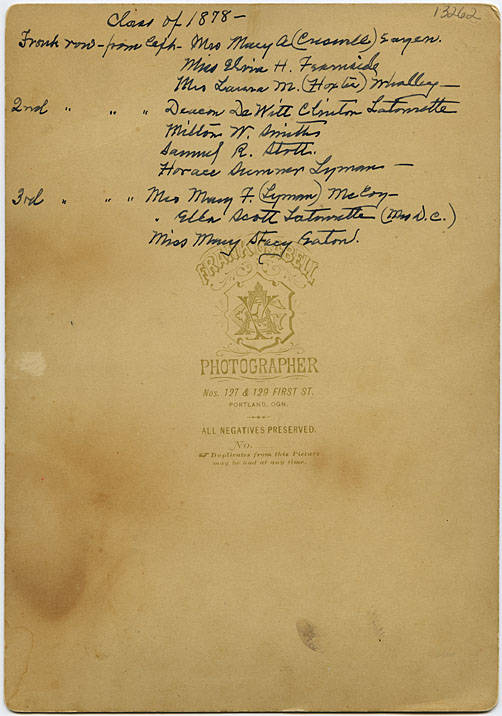 13262
Class of 1878 -
Front row - from left - Mrs Mary A (Creswell) Sayer.
Miss Elvia H. Fearnside
Mrs Laura M. (Hoxter) Whalley -
2nd " " " Deacon DeWitt Clinton Latourette
Milton W. Smith
Samuel R. Stott.
Horace Sumner Lyman -
3rd " " " Mrs Mary F. (Lyman) McCoy -
" Ella Scott Latourette (Mrs D.C.)
Miss Mary Stacy Eaton.
FRANK G. ABELL
PHOTOGRAPHER
Nos. 127 & 129 FIRST ST.
PORTLAND, OGN.
ALL NEGATIVES PRESERVED.
No.
Duplicates from this Picture
may be had at any time.